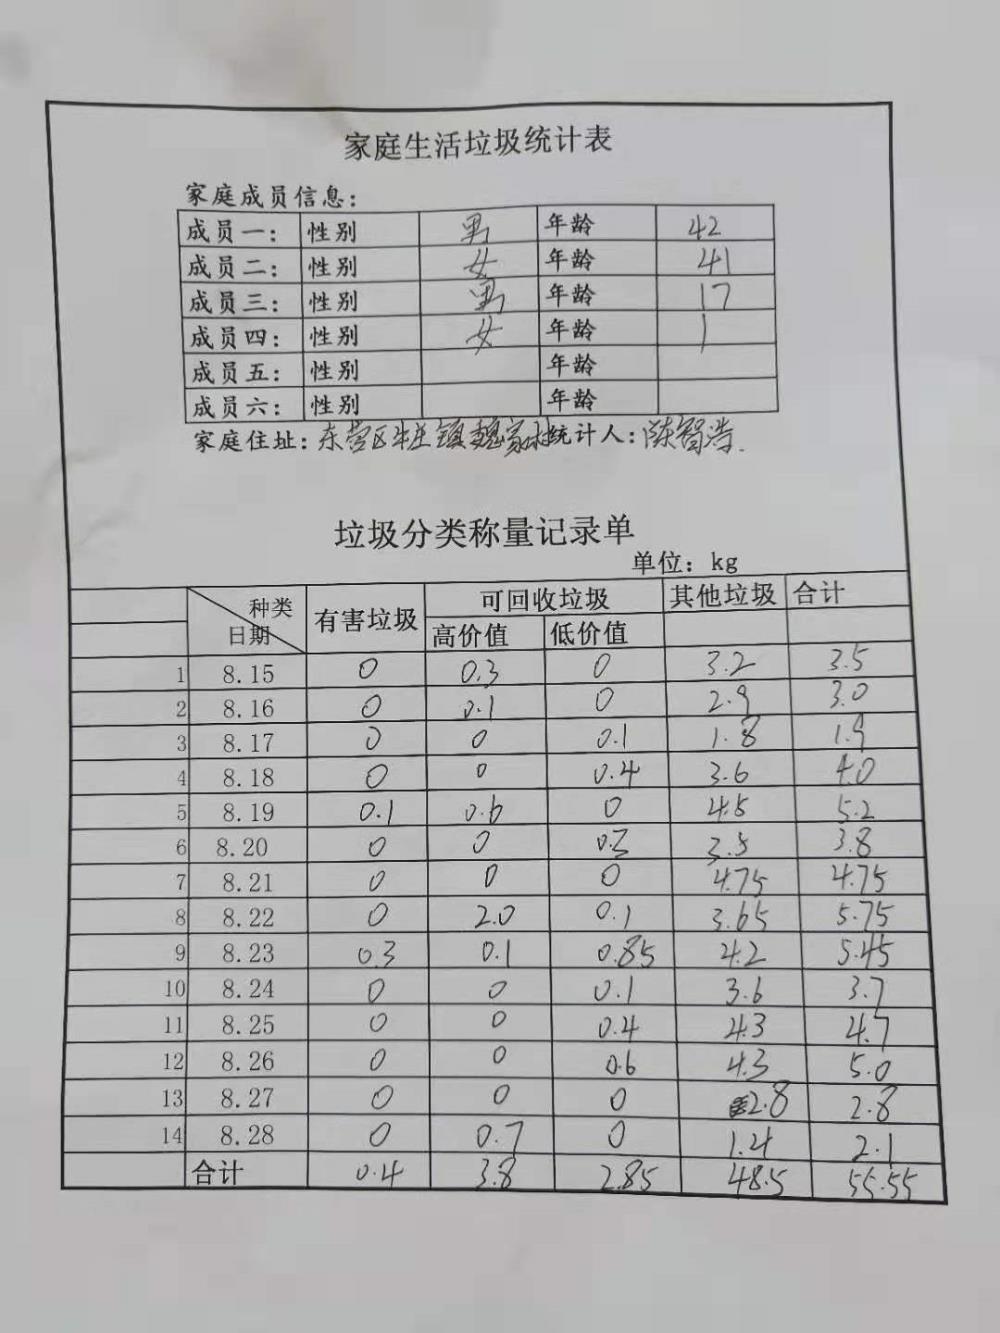 家庭生活垃圾统计表
家庭成员信息:
成员一: 性别 男 年龄 42
成员二: 性别 女 年龄 41
成员三: 性别 男 年龄 17
成员四: 性别 女 年龄 1
成员五: 性别 年龄
成员六: 性别 年龄
家庭住址: 东营区牛庄镇魏家村 统计人: 陈智浩.
垃圾分类称量记录单
单位: kg
种类 日期 有害垃圾 可回收垃圾 其他垃圾 合计
高价值 低价值
1 8.15 0 0.3 0 3.2 3.5
2 8.16 0 0.1 0 2.9 3.0
3 8.17 0 0 0.1 1.8 1.9
4 8.18 0 0 0.4 3.6 4.0
5 8.19 0.1 0.6 0 4.5 5.2
6 8.20 0 0 0.3 3.5 3.8
7 8.21 0 0 0 4.75 4.75
8 8.22 0 2.0 0.1 3.65 5.75
9 8.23 0.3 0.1 0.85 4.2 5.45
10 8.24 0 0 0.1 3.6 3.7
11 8.25 0 0 0.4 4.3 4.7
12 8.26 0 0 0.6 4.3 5.0
13 8.27 0 0 0 2.8 2.8
14 8.28 0 0.7 0 1.4 2.1
合计 0.4 3.8 2.85 48.5 55.55